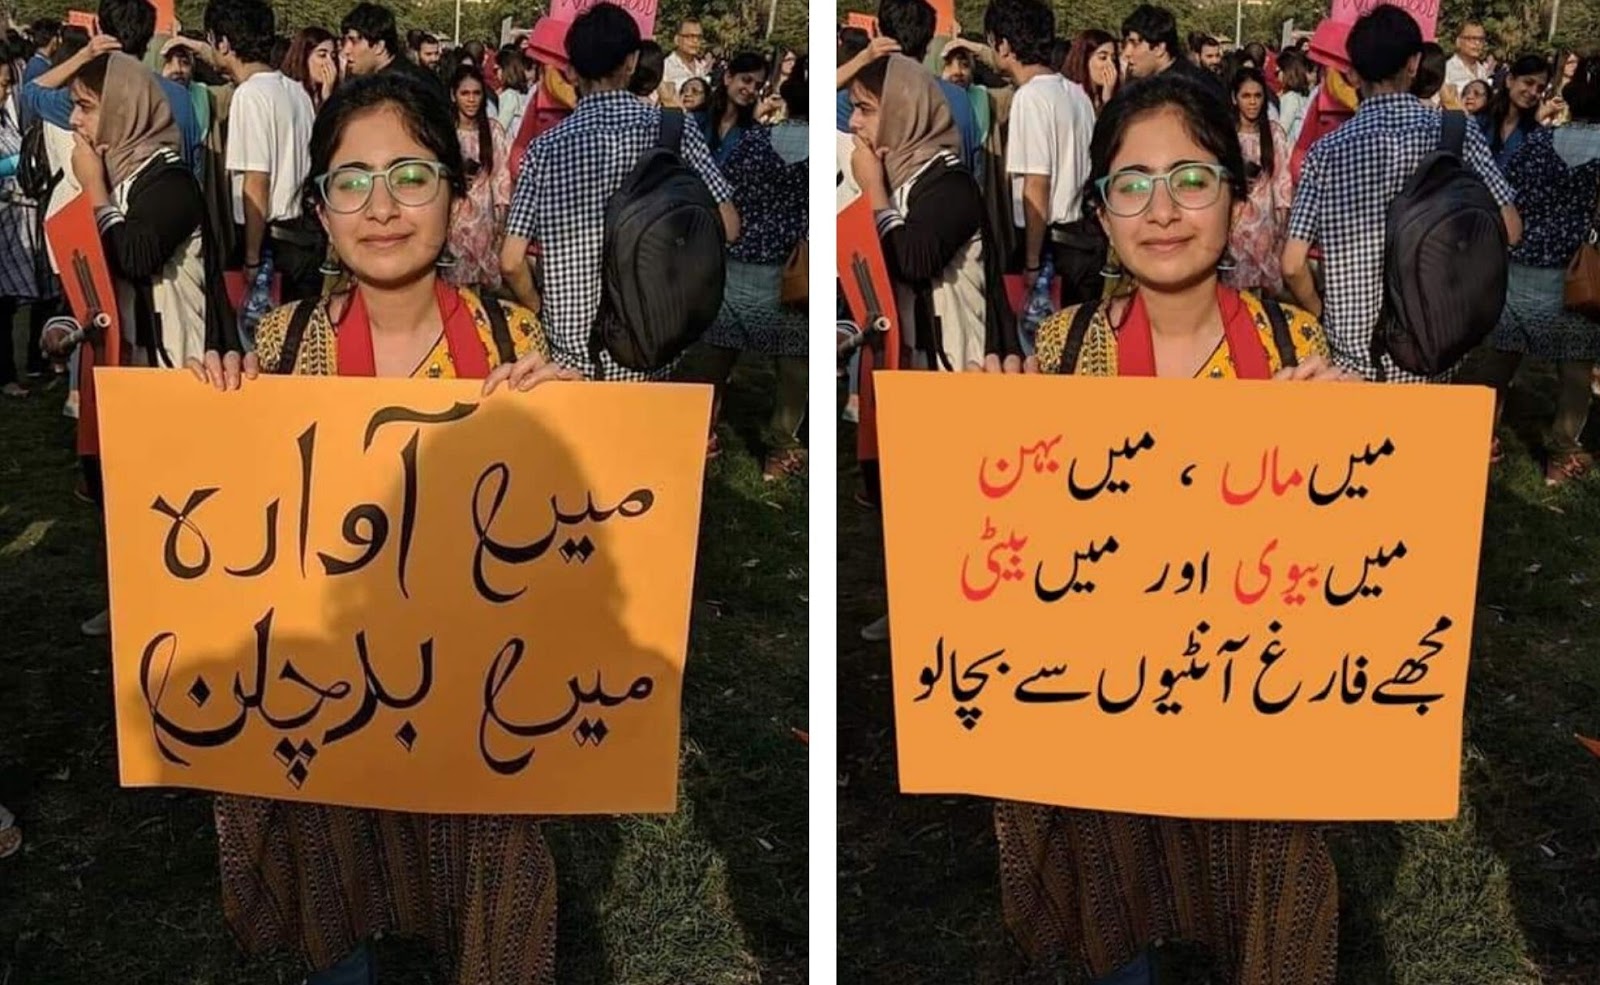 میں آوارہ
میں بدچلن
میں ماں ، میں بہن
میں بیوی اور میں بیٹی
مجھے فارغ آنٹیوں سے بچالو